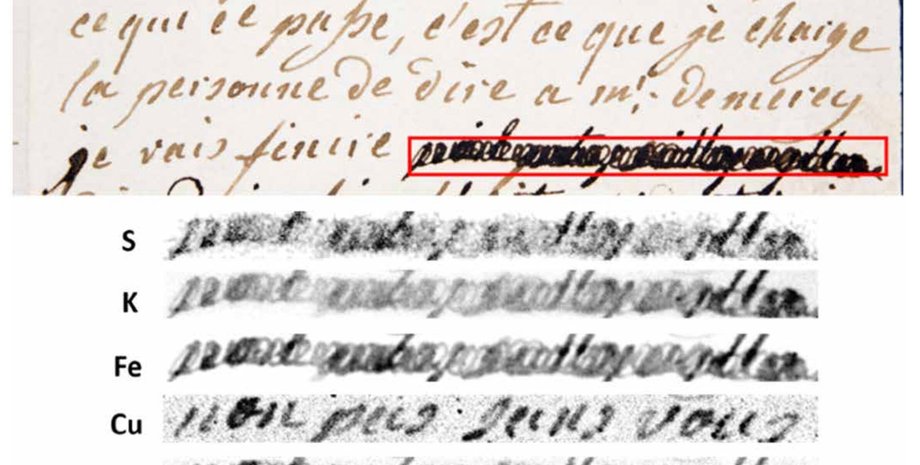 ce qui ce passe, c'est ce que je charge
la personne de dire a mr: de mercy
je vais finire
S
K
Fe
Cu non pas sans vous